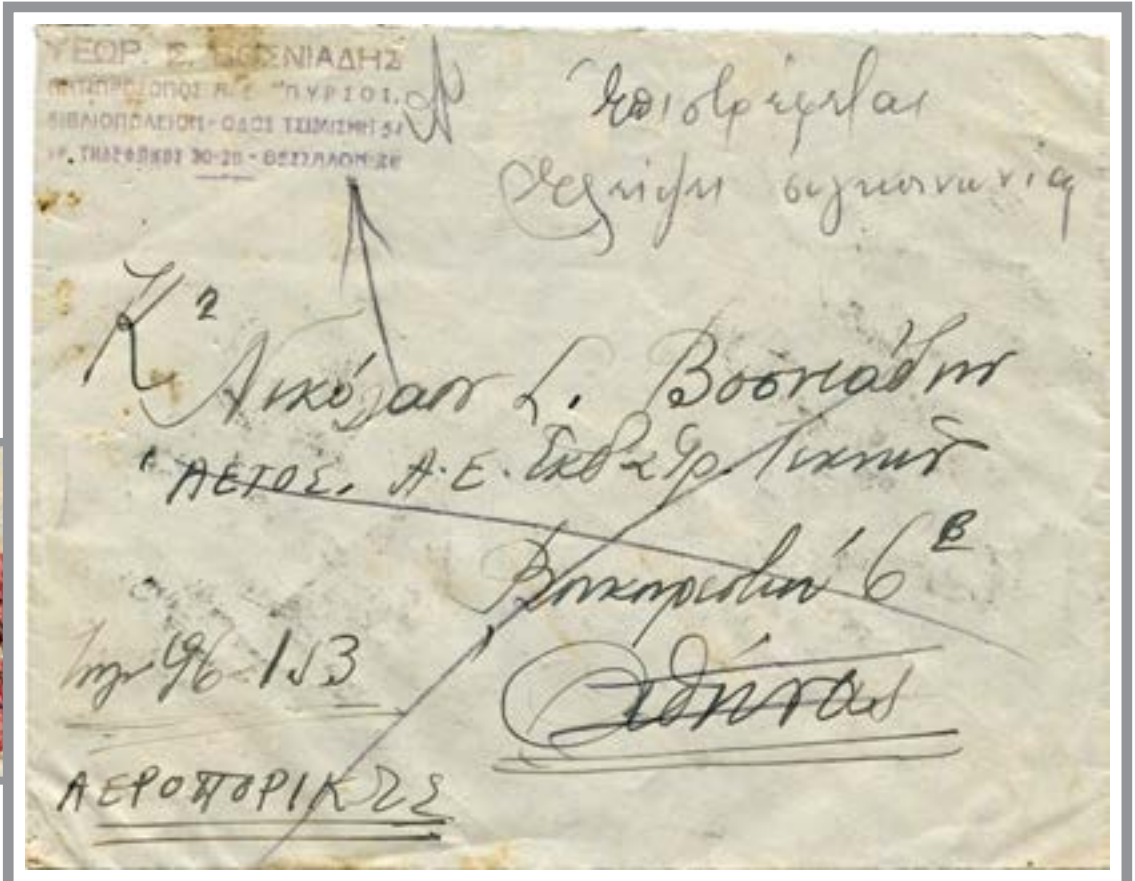 ΓΕΩΡ. Σ. ΒΟΣΝΙΑΔΗΣ
ΑΝΤΙΠΡΟΣΩΠΟΣ Α.Ε. "ΠΥΡΣΟΣ,
ΒΙΒΛΙΟΠΩΛΕΙΟΝ - ΟΔΟΣ ΤΣΙΜΙΣΚΗ
ΑΡ. ΤΗΛΕΦΩΝΟΥ 30-20 - ΘΕΣΣΑΛΟΝΙΚΗ
Επιστρέφεται
Ελλείψει συγκοινωνίας
Κον
Νικόλαον Σ. Βοσνιάδην
"ΑΕΤΟΣ, Α.Ε.
Βουκουρεστίου 6 Β
96-153
Αθήνας
ΑΕΡΟΠΟΡΙΚΩΣ